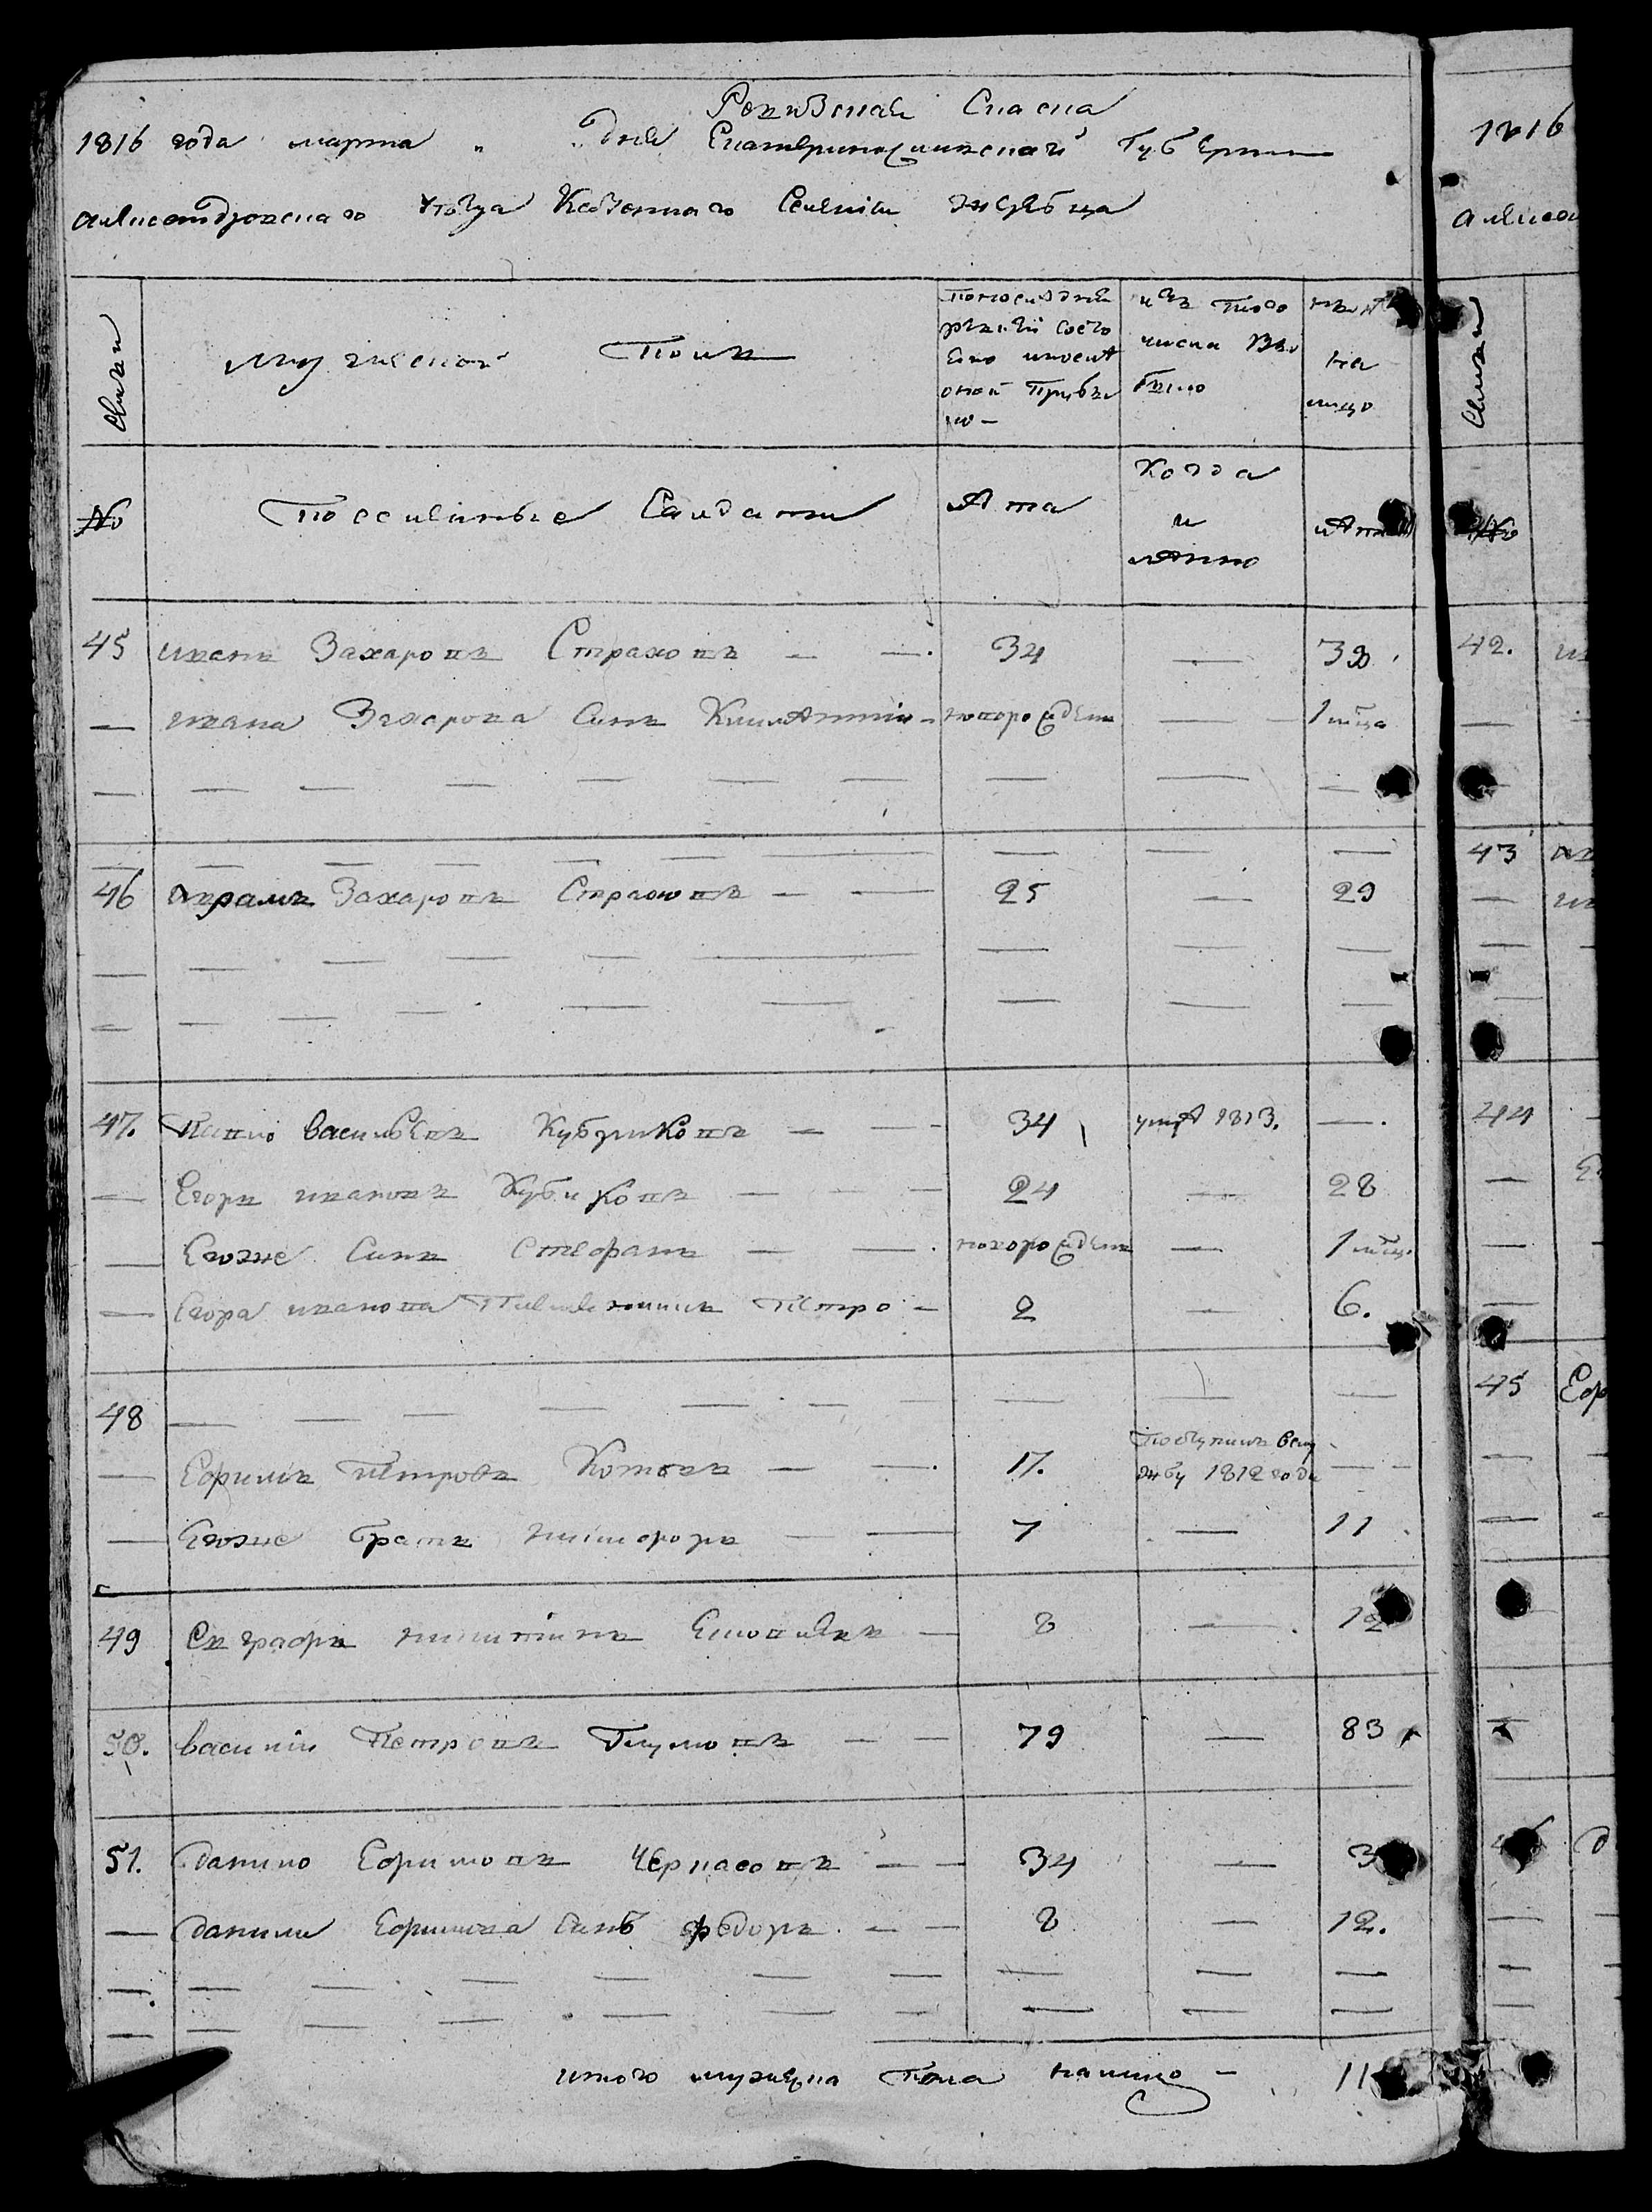 Ревизская Сказка
1816 года марта " " дня Екатеринославской Губернии
александровскаго уезда Казеннаго Селения жеребца
Семьи
мужеской Полъ
попоследней ревизии состояло ипосле оной Прибыло
изъ того числа Выбыло
ныне на лицо
№ Поселиные Салдаты лета Когда и летно лета
45 иванъ Захаровъ Страховъ 34 — 38
— ивана Захарова Синъ Климентий новорожденъ — 1 мца
46 аврамъ Захаровъ Страховъ 25 — 29
47. Павло василевъ Кубриковъ 34 уме 1813. —
— Егоръ ивановъ Кубриковъ 24 — 28
— Егоже Синъ Стефанъ новорожденъ — 1 мца.
— Егора иванова Племянникъ Петро 2 — 6.
48
— Ефимъ Петровъ Котовъ 17. Поступилъ вслужбу 1812 года —
— Егоже братъ никифоръ 7 — 11
49 Евграфъ никитинъ 8 — 12
50. василий Петровъ 79 — 83
51. данило Ефимовъ Черкасовъ 34 — 3
— данила Ефимова Синъ федоръ 8 — 12.
итого мужеска Пола налицо — 11
1816
алексан
Семьи
№
42.
43
44
45 Еф